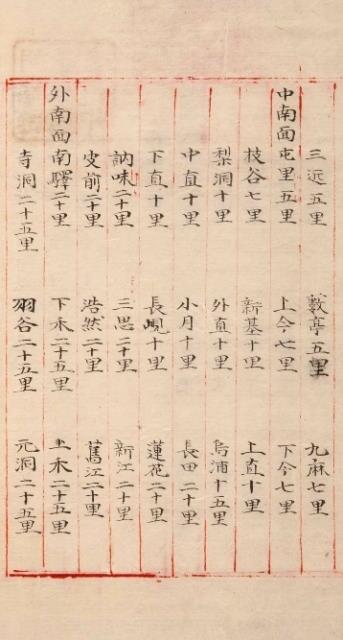 三远五里 藪亭五里 九麻七里
中南面屯里五里 上今七里 下今七里
枝谷七里 新基十里 上直十里
梨洞十里 外直十里 烏浦十五里
中直十里 小月十里 長田二十里
下直十里 長峴十里 蓮花二十里
訥味二十里 三思二十里 新江二十里
皮前二十里 浩然二十里 舊江二十里
外南面南驛二十里 下禾二十五里 上禾二十五里
寺洞二十五里 羽谷二十五里 元洞二十五里